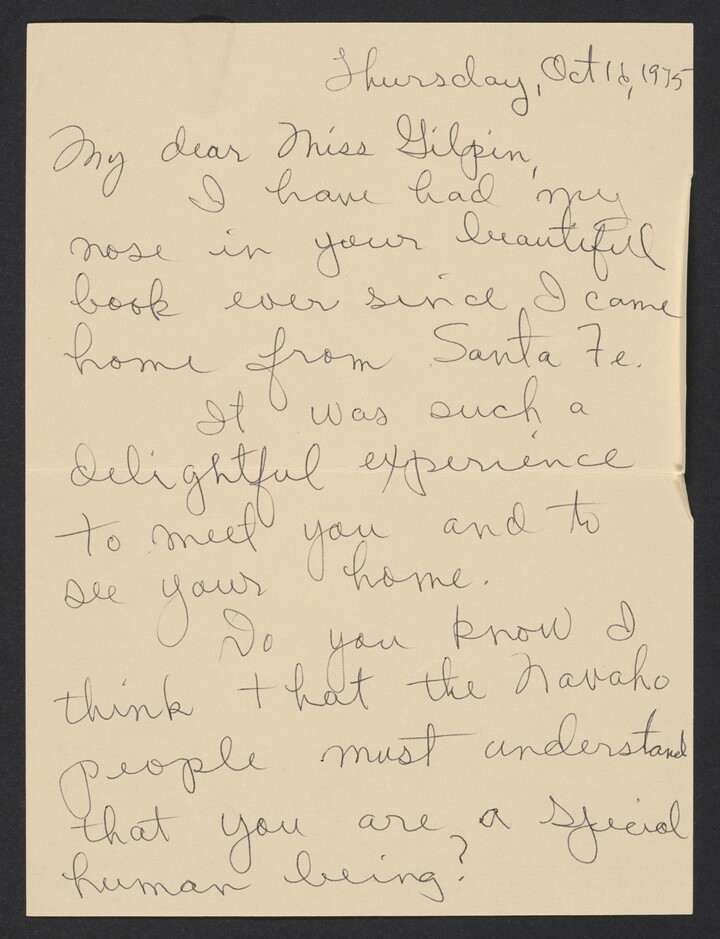 Thursday, Oct 16, 1975
My dear Miss Gilpin,
I have had my
nose in your beautiful
book ever since I came
home from Santa Fe.
It was such a
delightful experience
to meet you and to
see your home.
Do you know I
think that the Navaho
people must understand
that you are a special
human being?